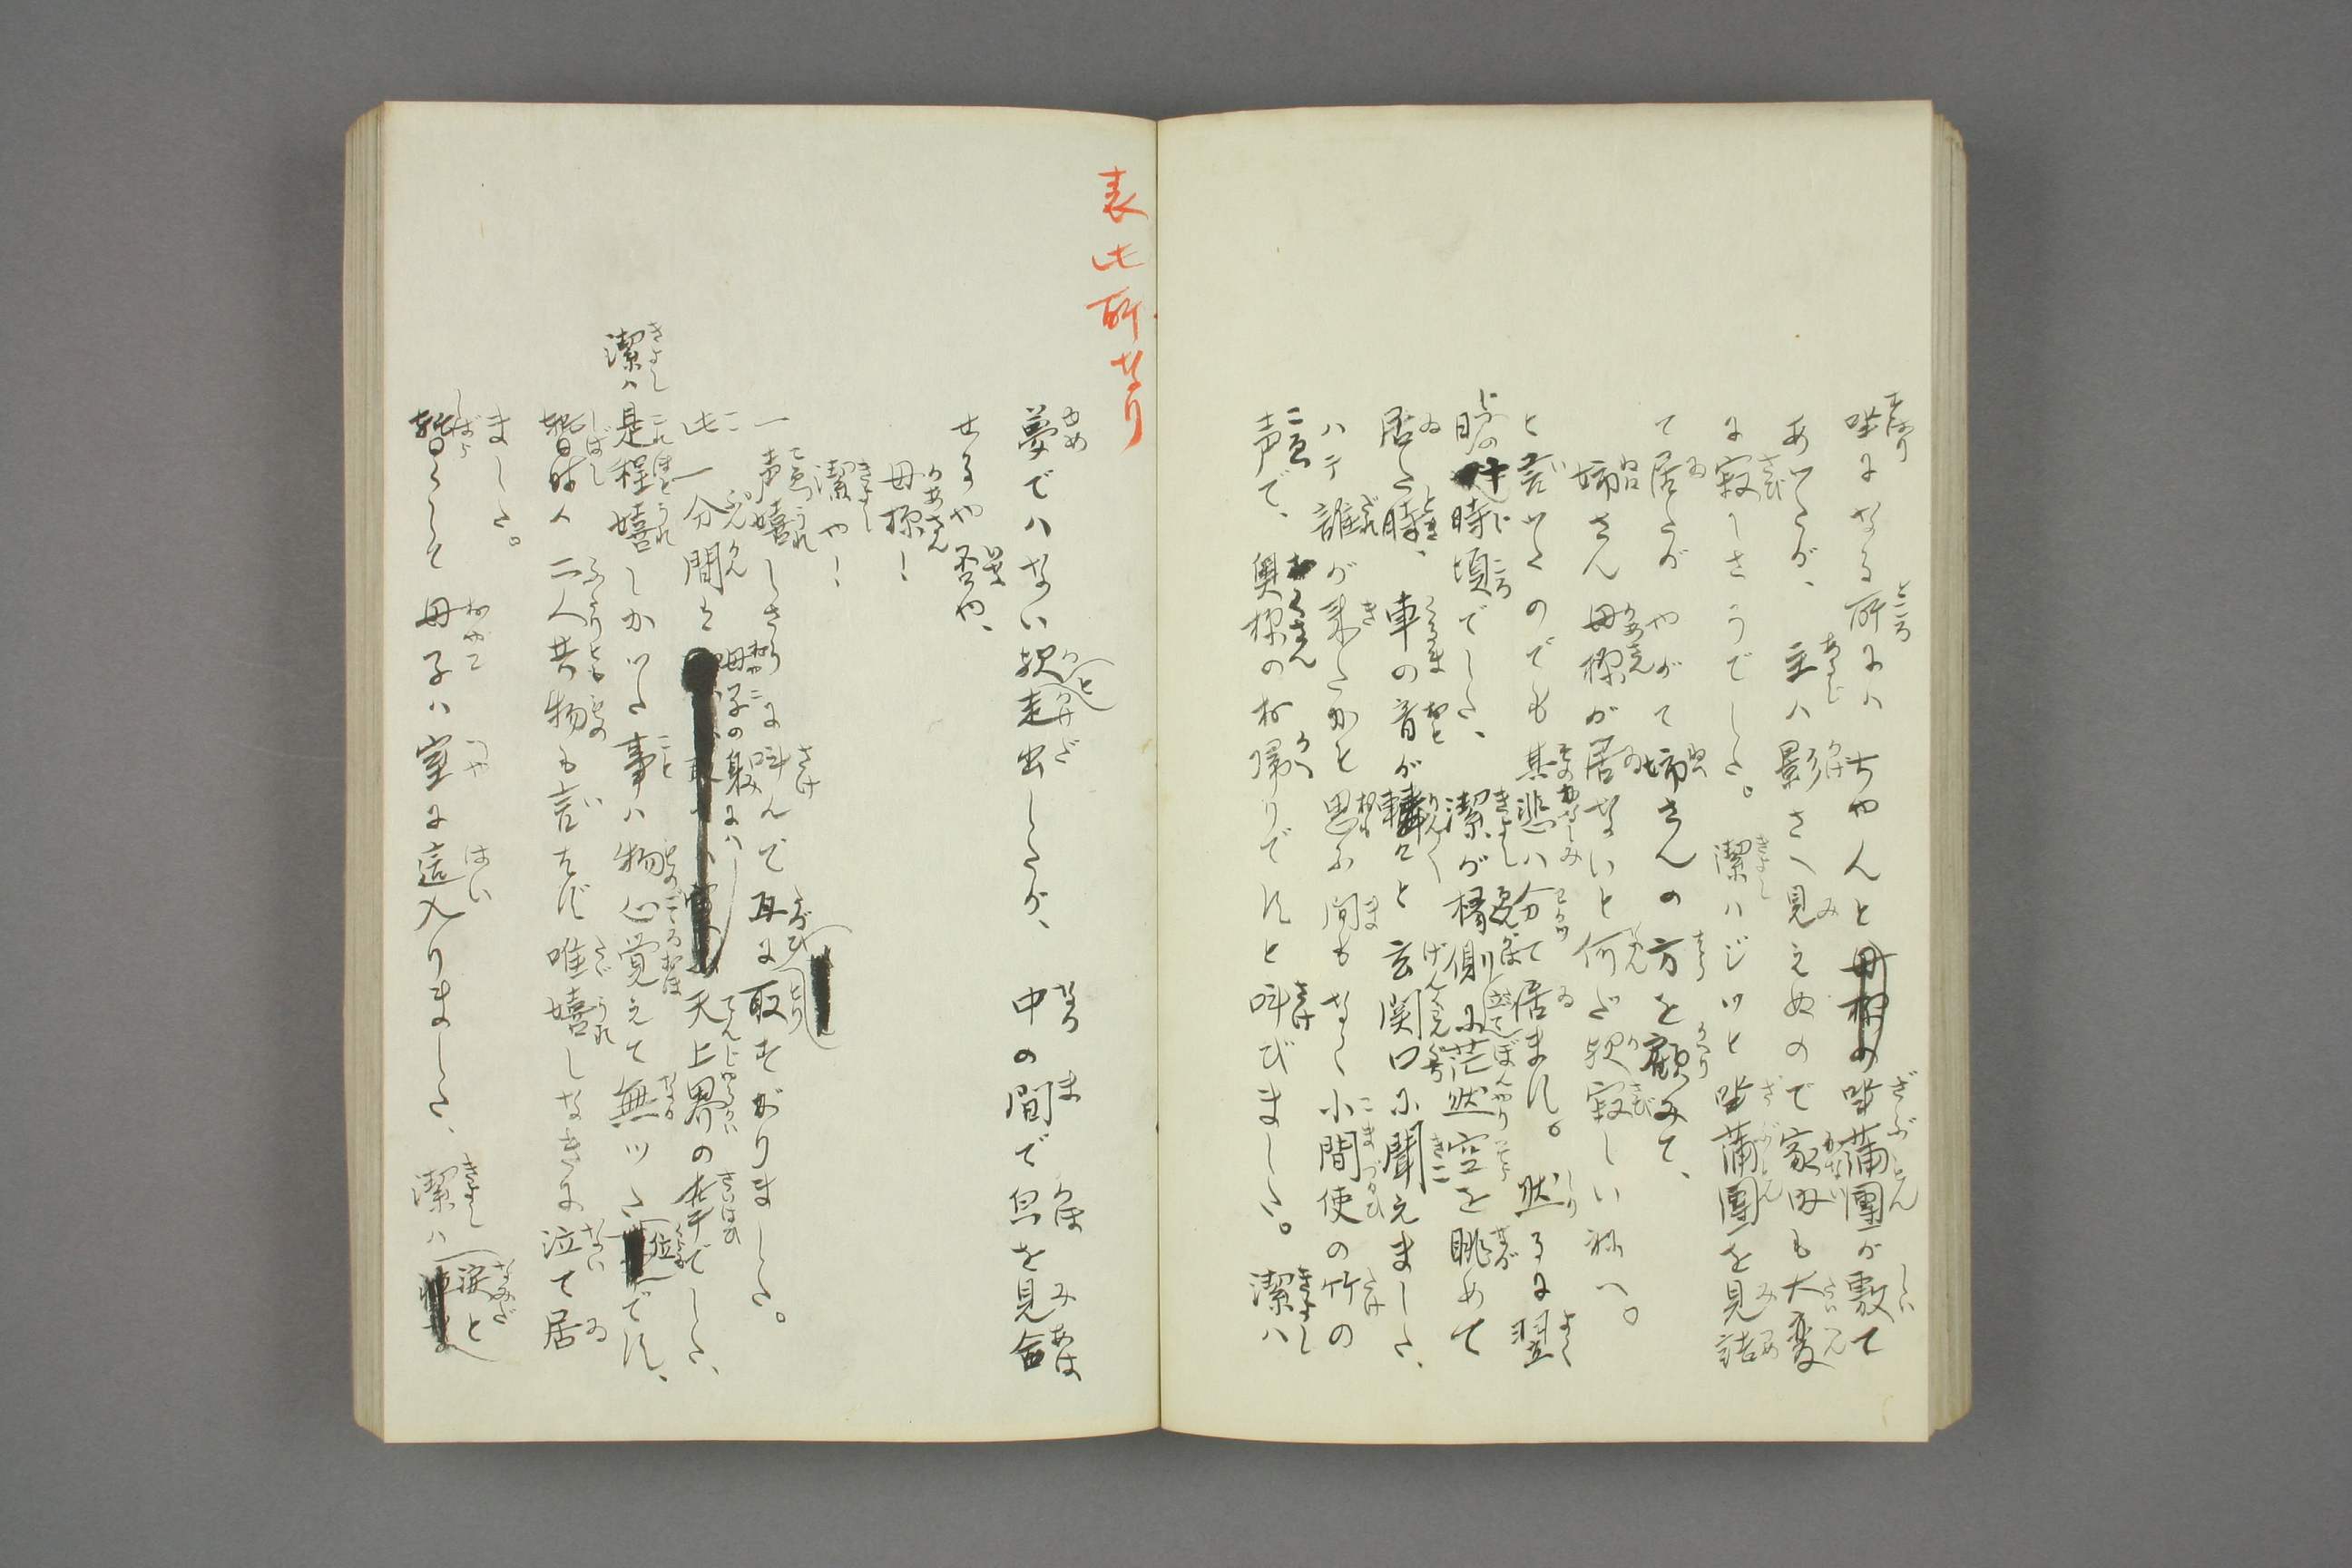 坐になる所にハちやんと坐蒲團が敷て
あツたが、主ハ影さへ見えぬので家内も大変
に寂しさうでした。潔ハジツと坐蒲團を見詰
て居たがやがて姉さんの方を顧みて、
姉さん母様が居ないと何だか寂しい
と言ツたのでも其悲ハ分て居ます。然るに翌
時頃でした、潔が椽側に茫然空を眺めて
居た時、車の音が轟々と玄関口に聞えました、
ハテ誰が来たかと思ふ間もなく小間使の竹の
声で、奥様のお帰りですと叫びました。潔ハ
表此所なり
夢でハない歟と走出したが、中の間で息を見合
せるや否や、
母様!
潔や!
一声嬉しさうに叫んで互に取すがりました。
此一分間と母子の躬にハ天上界の幸でした、
潔ハ是程嬉しかツた事ハ物心覚えて無ツた位です、
暫時ハ二人共物も言はず唯嬉しなきに泣て居
ました。
暫くして母子ハ室に這入りました、潔ハ涙と